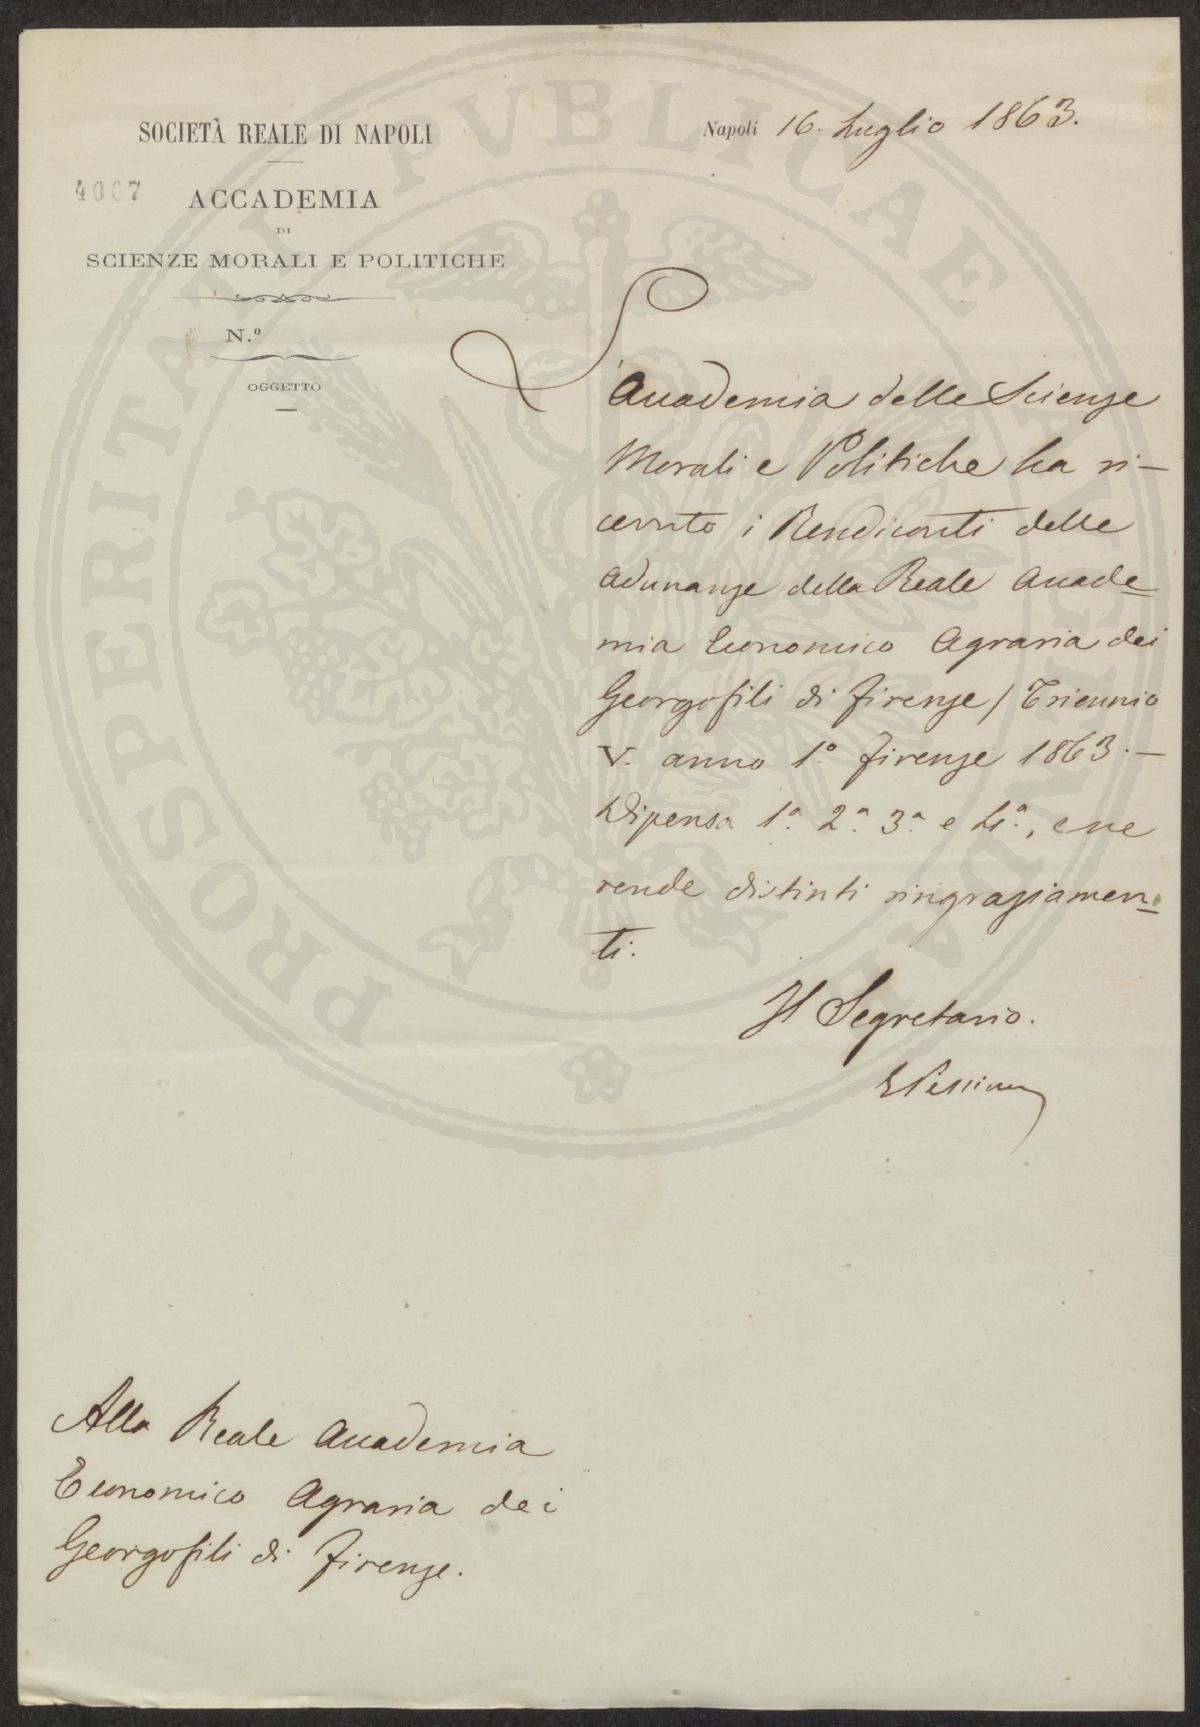 SOCIETÀ REALE DI NAPOLI
4007
ACCADEMIA
DI
SCIENZE MORALI E POLITICHE
N.º
OGGETTO
Napoli 16. Luglio 1863.
L'Accademia delle Scienze
Morali e Politiche ha ri-
cevuto i Rendiconti delle
Adunanze della Reale Accade-
mia Economico Agraria dei
Georgofili di Firenze / Triennio
V. anno 1º Firenze 1863. —
Dispensa 1ª 2ª 3ª e 4ª, e ne
rende distinti ringraziamen-
ti.
Il Segretario.
Alla Reale Accademia
Economico Agraria dei
Georgofili di Firenze.
PROSPERITATI PUBLICAE AUGENDAE